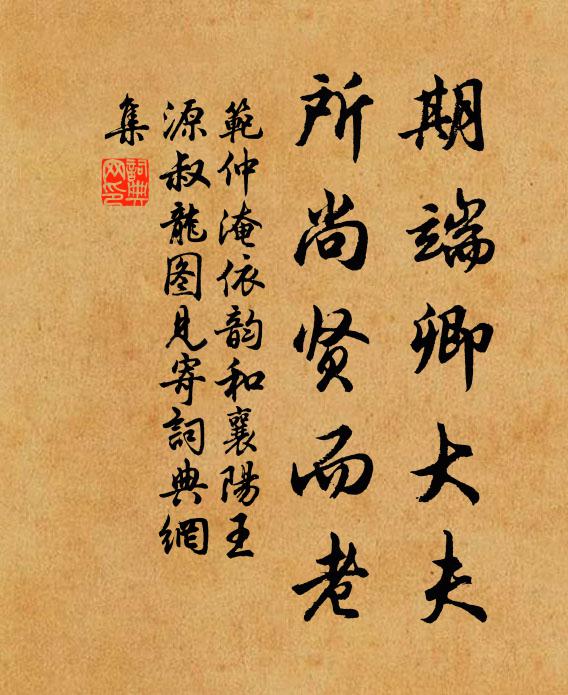 期端卿大夫
所尚贤而老
範仲淹依韵和襄陽王
源叔龍图見寄詞典網
集
詞典网印